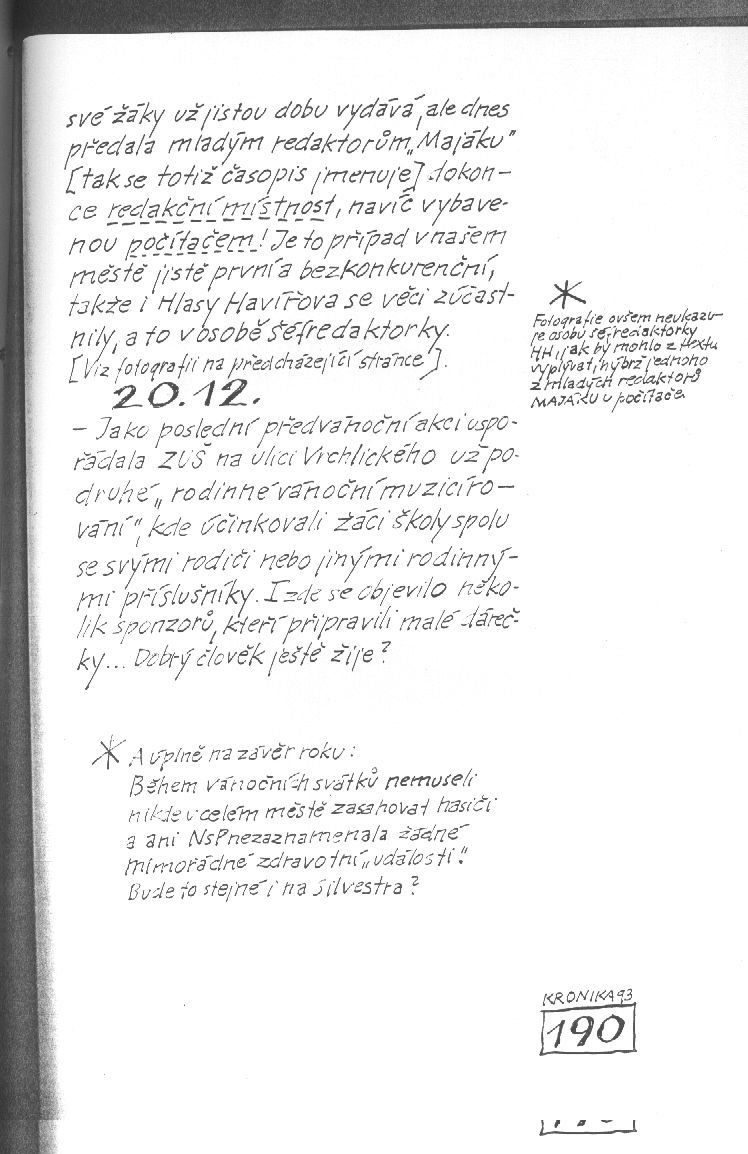 své žáky už jistou dobu vydává, ale dnes
předala mladým redaktorům „Majáku"
[tak se totiž časopis jmenuje] dokon-
ce redakční místnost, navíc vybave-
nou počítačem! Je to případ v našem
městě jistě první a bezkonkurenční,
takže i Hlasy Havířova se věci zúčast-
nily, a to v osobě šéfredaktorky.
[Viz fotografii na předcházející stránce].
20.12.
– Jako poslední předvánoční akci uspo-
řádala ZUŠ na ulici Vrchlického už po-
druhé „rodinné vánoční muzicíro-
vání", kde účinkovali žáci školy spolu
se svými rodiči nebo jinými rodinný-
mi příslušníky. I zde se objevilo něko-
lik sponzorů, kteří připravili malé dáreč-
ky... Dobrý člověk ještě žije?
* Fotografie ovšem neukazu-
je osobu šéfredaktorky
HH, jak by mohlo z textu
vyplývat, nýbrž jednoho
z mladých redaktorů
MAJÁKU u počítače.
* A úplně na závěr roku:
Během vánočních svátků nemuseli
nikde v celém městě zasahovat hasiči
a ani NsP nezaznamenala žádné
mimořádné zdravotní „události".
Bude to stejné i na Silvestra?
KRONIKA 93
190